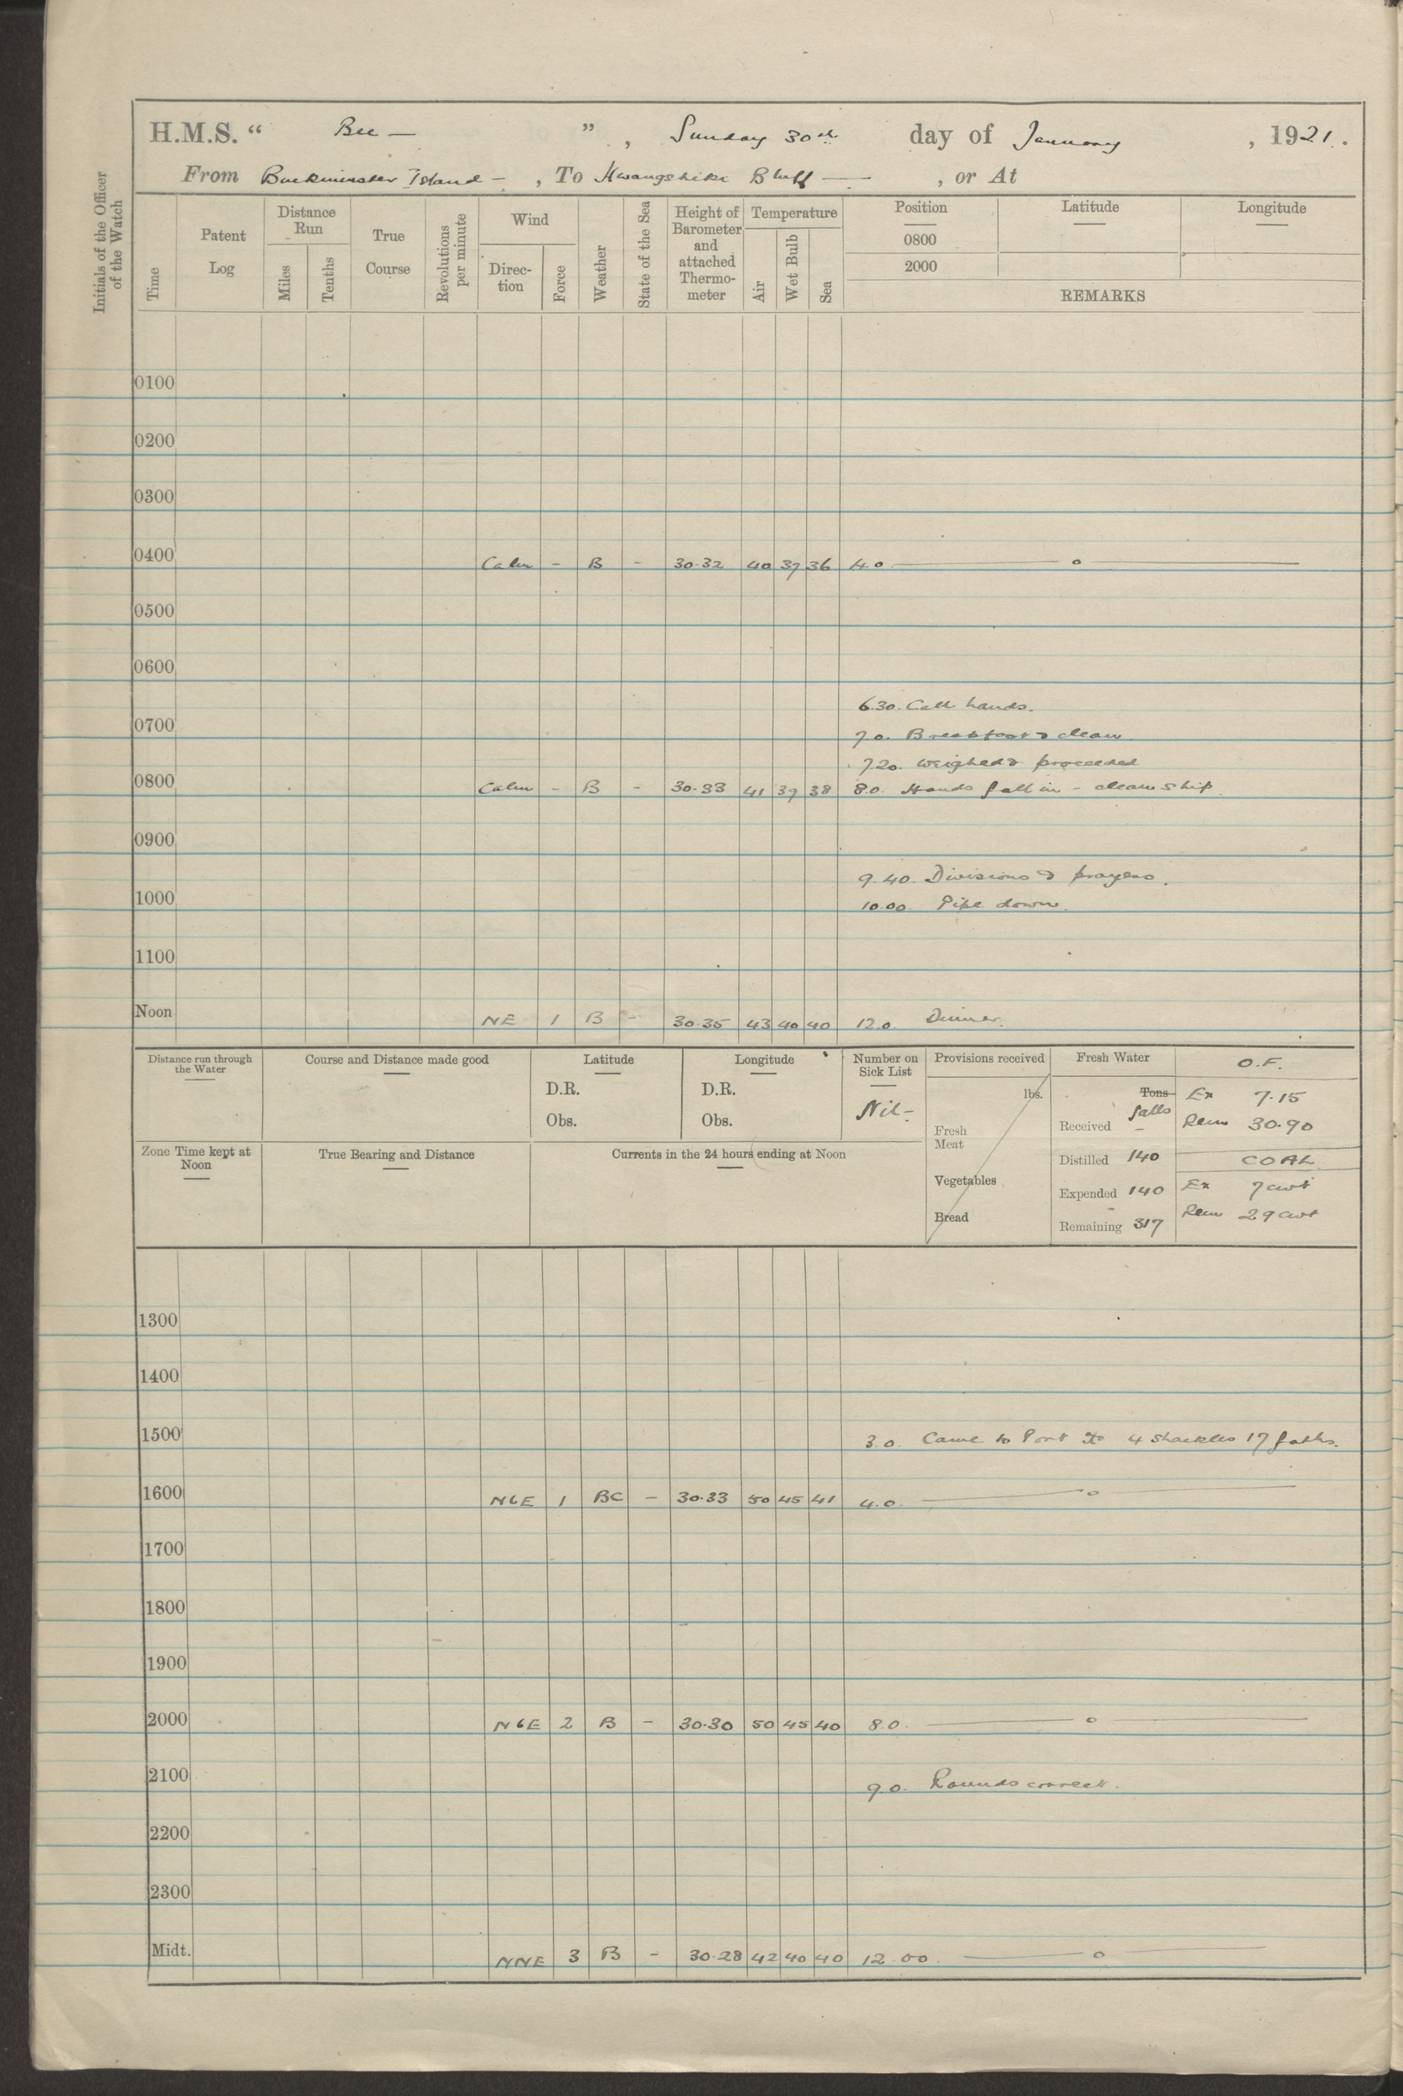 H.M.S. “ Bee — ” , Sunday 30th day of January , 1921.
From Buckminster Island — , To Hwangshihi Bluff — , or At
Initials of the Officer of the Watch
Time
Patent Log
Distance Run
Miles
Tenths
True Course
Revolutions per minute
Wind
Direc-tion
Force
Weather
State of the Sea
Height of Barometer and attached Thermo-meter
Temperature
Air
Wet Bulb
Sea
Position
Latitude
Longitude
0800
2000
REMARKS
0100
0200
0300
0400 Calm - B - 30.32 40 37 36 4.0 — o —
0500
0600
6.30. Call hands.
0700
7.0. Breakfast & clean
7.20. Weighed & proceeded
0800 Calm - B - 30.33 41 39 38 8.0. Hands fall in - clean ship.
0900
9.40. Divisions & prayers.
1000 10.00 Pipe down.
1100
Noon NE 1 B - 30.35 43 40 40 12.0. Dinner.
Distance run through the Water
Course and Distance made good
Latitude
D.R.
Obs.
Longitude
D.R.
Obs.
Number on Sick List
Nil -
Provisions received
lbs.
Fresh Meat
Vegetables
Bread
Fresh Water
Tons
galls
Received -
Distilled 140
Expended 140
Remaining 317
O.F.
Ex 7.15
Rem 30.90
COAL
Ex 7 cwt
Rem 29 cwt
Zone Time kept at Noon
True Bearing and Distance
Currents in the 24 hours ending at Noon
1300
1400
1500 3.0. Came to Port 4 shackles 17 faths.
1600 NbE 1 BC - 30.33 50 45 41 4.0. — o —
1700
1800
1900
2000 NbE 2 B - 30.30 50 45 40 8.0. — o —
2100 9.0. Rounds correct.
2200
2300
Midt. NNE 3 B - 30.28 42 40 40 12.00. — o —